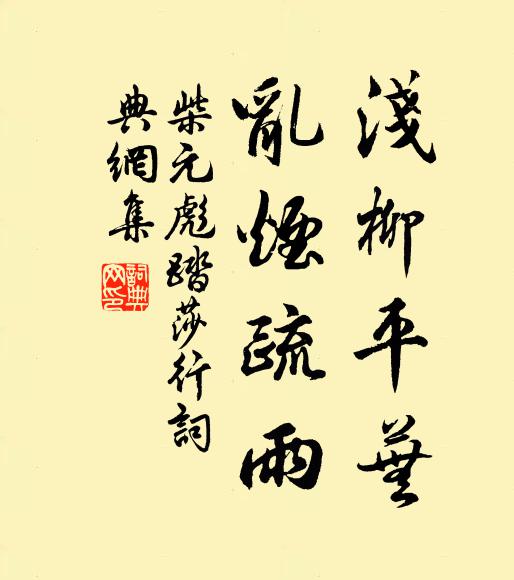 淺柳平蕪
亂煙疏雨
柴元彪踏莎行詞
典網集
詞典網印